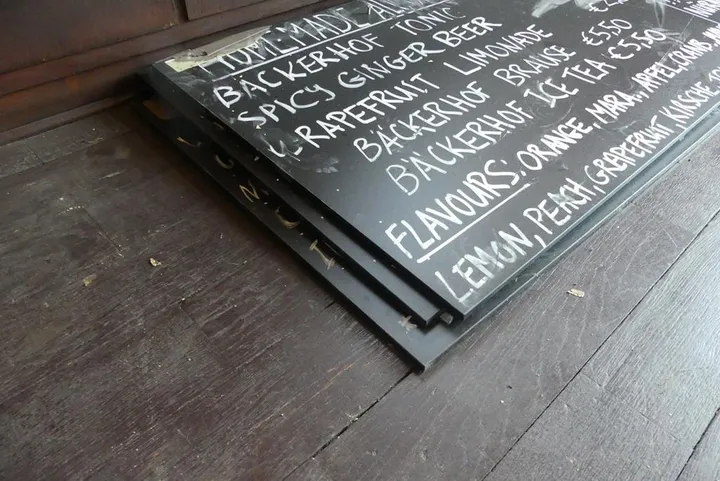 HOMEMADE
BÄCKERHOF TONIC
SPICY GINGER BEER
GRAPEFRUIT LIMONADE
BÄCKERHOF BRAUSE €5,50
BÄCKERHOF ICE TEA €5,50
FLAVOURS: ORANGE, MARA,
LEMON, PEACH, GRAPEFRUIT,